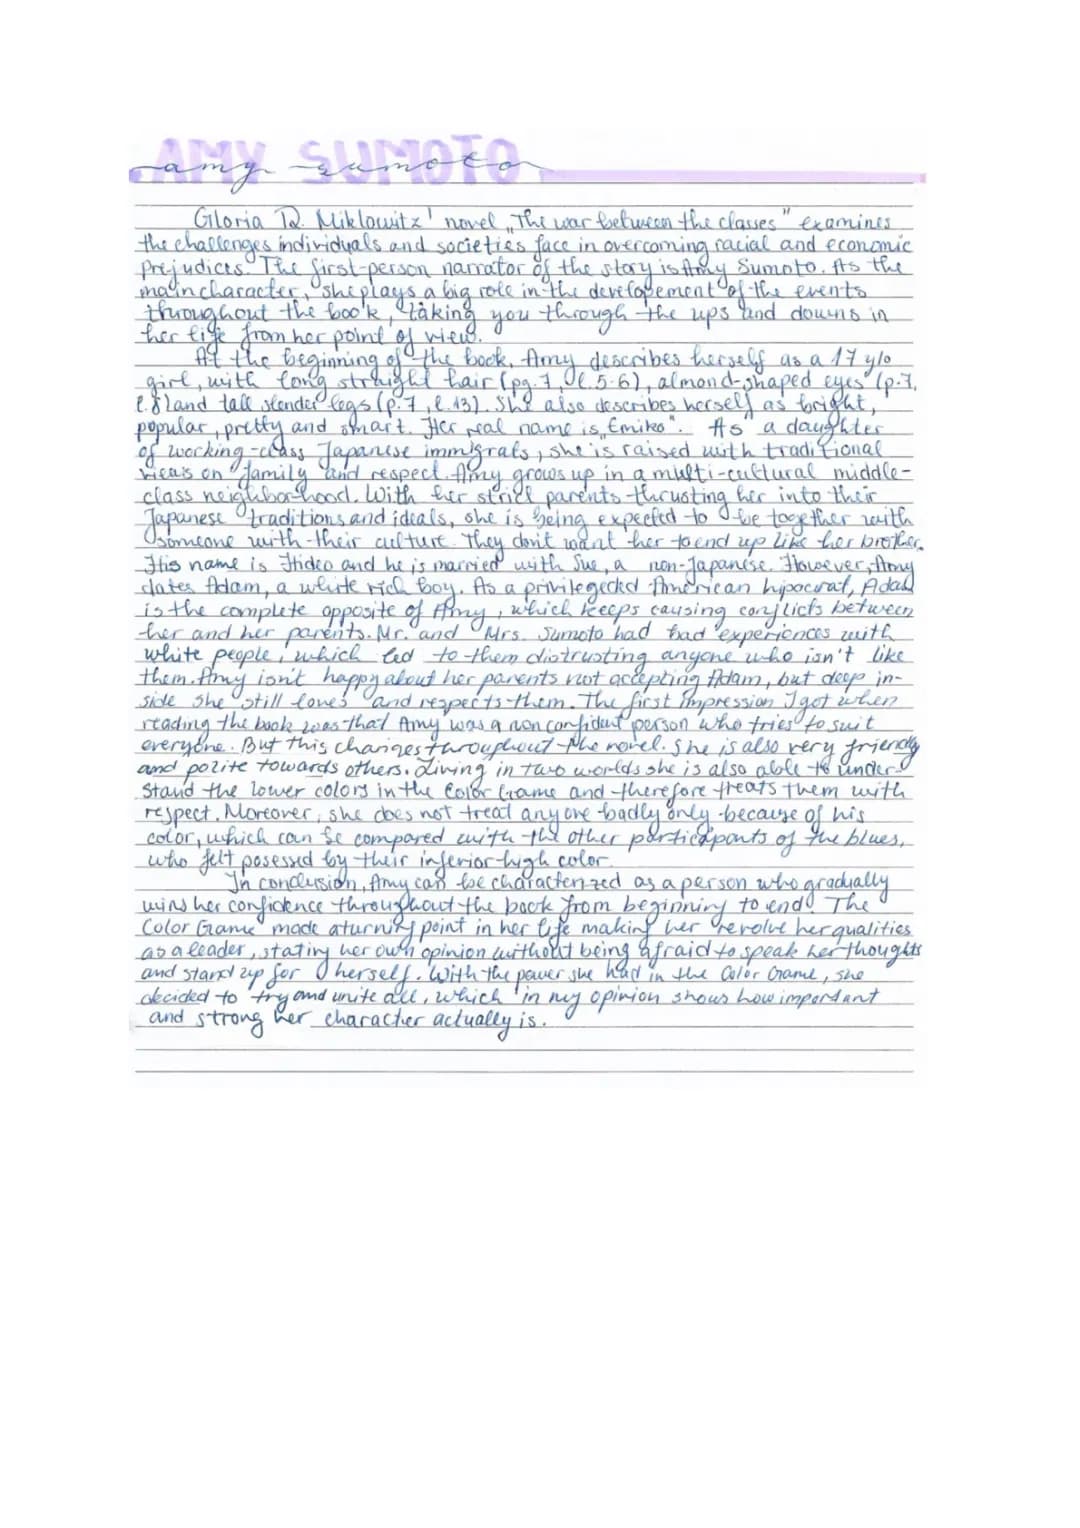 AMY SUMOTO
amy sumoto
Gloria D. Miklowitz' novel „The war between the classes" examines
the challenges individuals and societies face in overcoming racial and economic
prejudices. The first-person narrator of the story is Amy Sumoto. As the
main character, she plays a big role in the developement of the events
throughout the book, taking you through the ups and downs in
her life from her point of view.
At the beginning of the book, Amy describes herself as a 17 y/o
girl, with long straight hair (pg. 7, l. 5-6), almond-shaped eyes (p. 7,
l. 8) and tall slender legs (p. 7, l. 13). She also describes herself as bright,
popular, pretty and smart. Her real name is „Emiko". As a daughter
of working-class Japanese immigrats, she is raised with traditional
views on family and respect. Amy grows up in a multi-cultural middle-
class neighborhood. With her strict parents thrusting her into their
Japanese traditions and ideals, she is being expected to be together with
someone with their culture. They don't want her to end up like her brother.
His name is Hideo and he is married with Sue, a non-Japanese. However, Amy
dates Adam, a white rich boy. As a privilegeded American hipocrat, Adam
is the complete opposite of Amy, which keeps causing conflicts between
her and her parents. Mr. and Mrs. Sumoto had bad experiences with
white people, which led to them distrusting anyone who isn't like
them. Amy isn't happy about her parents not accepting Adam, but deep in-
side she still loves and respects them. The first impression I got when
reading the book was that Amy was a non confident person who tries to suit
everyone. But this changes throughout the novel. She is also very friendly
and polite towards others. Living in two worlds she is also able to under-
stand the lower colors in the Color Game and therefore treats them with
respect. Moreover, she does not treat anyone badly only because of his
color, which can be compared with the other participants of the blues,
who felt posessed by their inferior-high color.
In conclusion, Amy can be characterized as a person who gradually
wins her confidence throughout the book from beginning to end. The
Color Game made a turning point in her life making her revolve her qualities
as a leader, stating her own opinion without being afraid to speak her thoughts
and stand up for herself. With the power she had in the Color Game, she
decided to try and unite all, which in my opinion shows how important
and strong her character actually is.